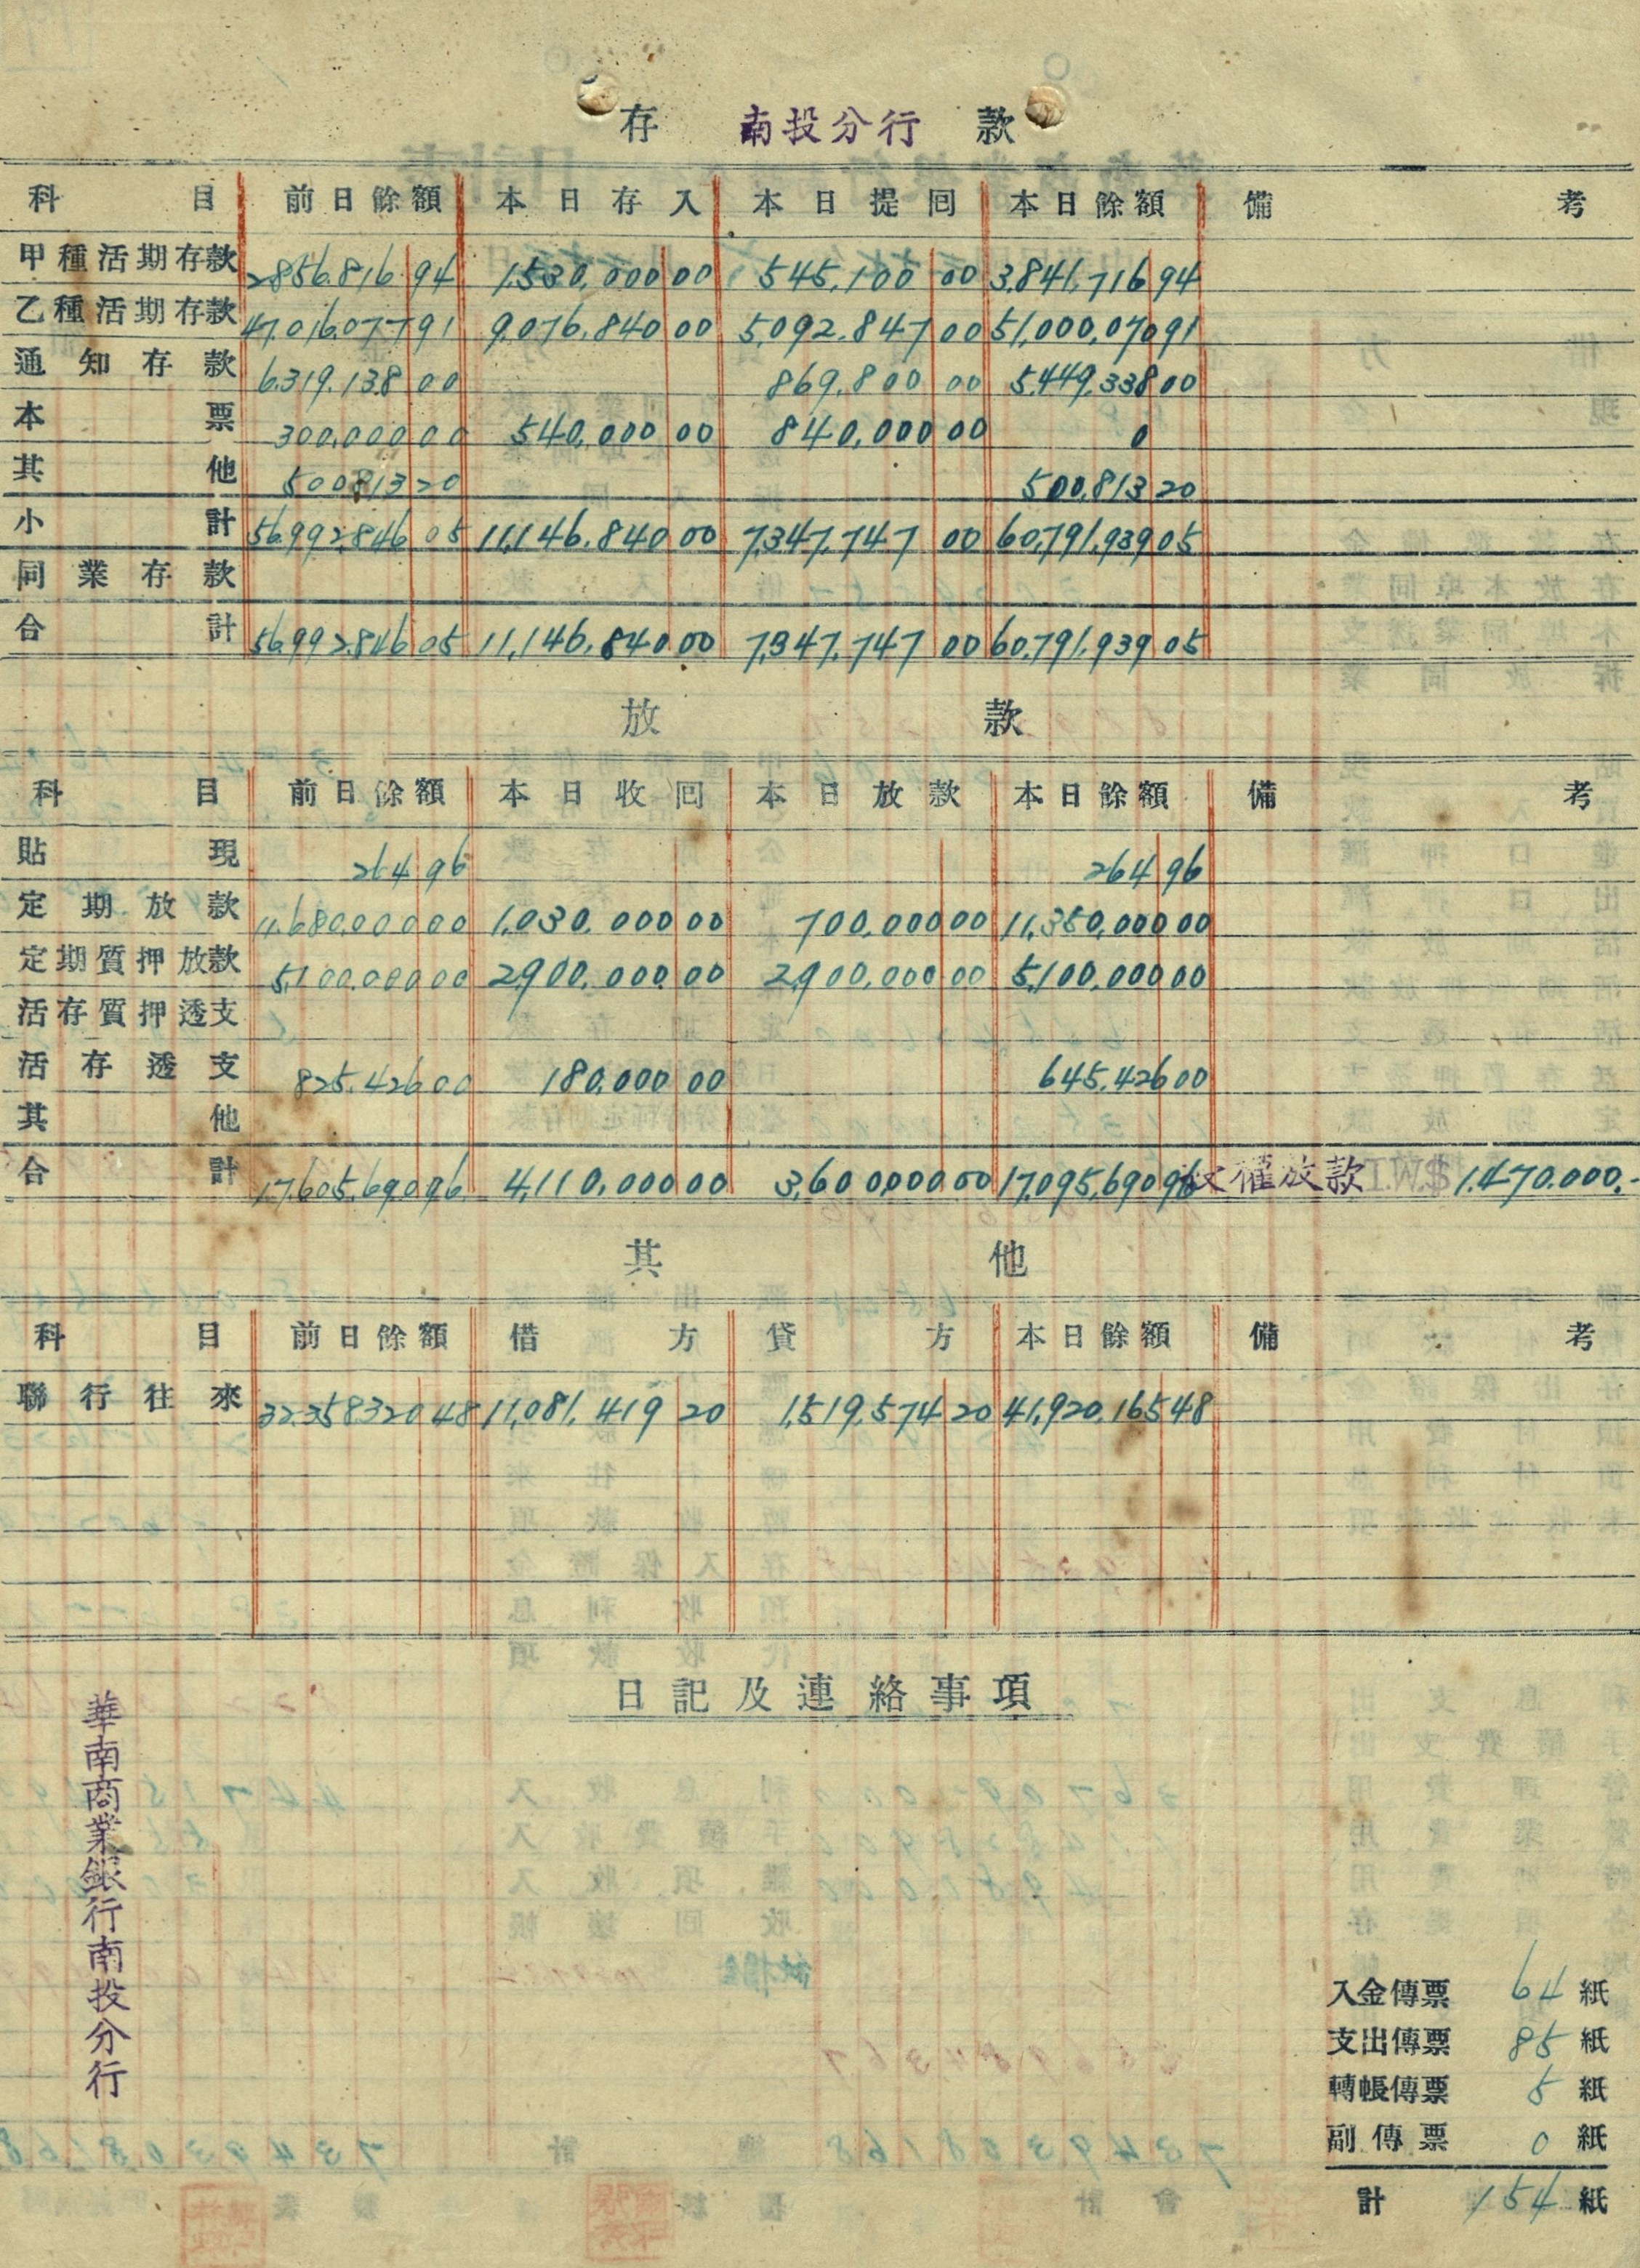 存 南投分行 款
科目 前日餘額 本日存入 本日提囘 本日餘額 備考
甲種活期存款 2,856,816 94 1,530,000 00 545,100 00 3,841,716 94
乙種活期存款 47,016,077 91 9,076,840 00 5,092,847 00 51,000,070 91
通知存款 6,319,138 00 869,800 00 5,449,338 00
本票 300,000 00 540,000 00 840,000 00 0
其他 500,813 20 500,813 20
小計 56,992,846 05 11,146,840 00 7,347,747 00 60,791,939 05
同業存款
合計 56,992,846 05 11,146,840 00 7,347,747 00 60,791,939 05
放款
科目 前日餘額 本日收囘 本日放款 本日餘額 備考
貼現 264 96 264 96
定期放款 11,680,000 00 1,030,000 00 700,000 00 11,350,000 00
定期質押放款 5,100,000 00 2,900,000 00 2,900,000 00 5,100,000 00
活存質押透支
活存透支 825,426 00 180,000 00 645,426 00
其他
合計 17,605,690 96 4,110,000 00 3,600,000 00 17,095,690 96 放款 T.W.$ 1,470,000.-
其他
科目 前日餘額 借方 貸方 本日餘額 備考
聯行往來 32,358,320 48 11,081,419 20 1,519,574 20 41,920,165 48
日記及連絡事項
華南商業銀行南投分行
入金傳票 64 紙
支出傳票 85 紙
轉帳傳票 5 紙
副傳票 0 紙
計 154 紙